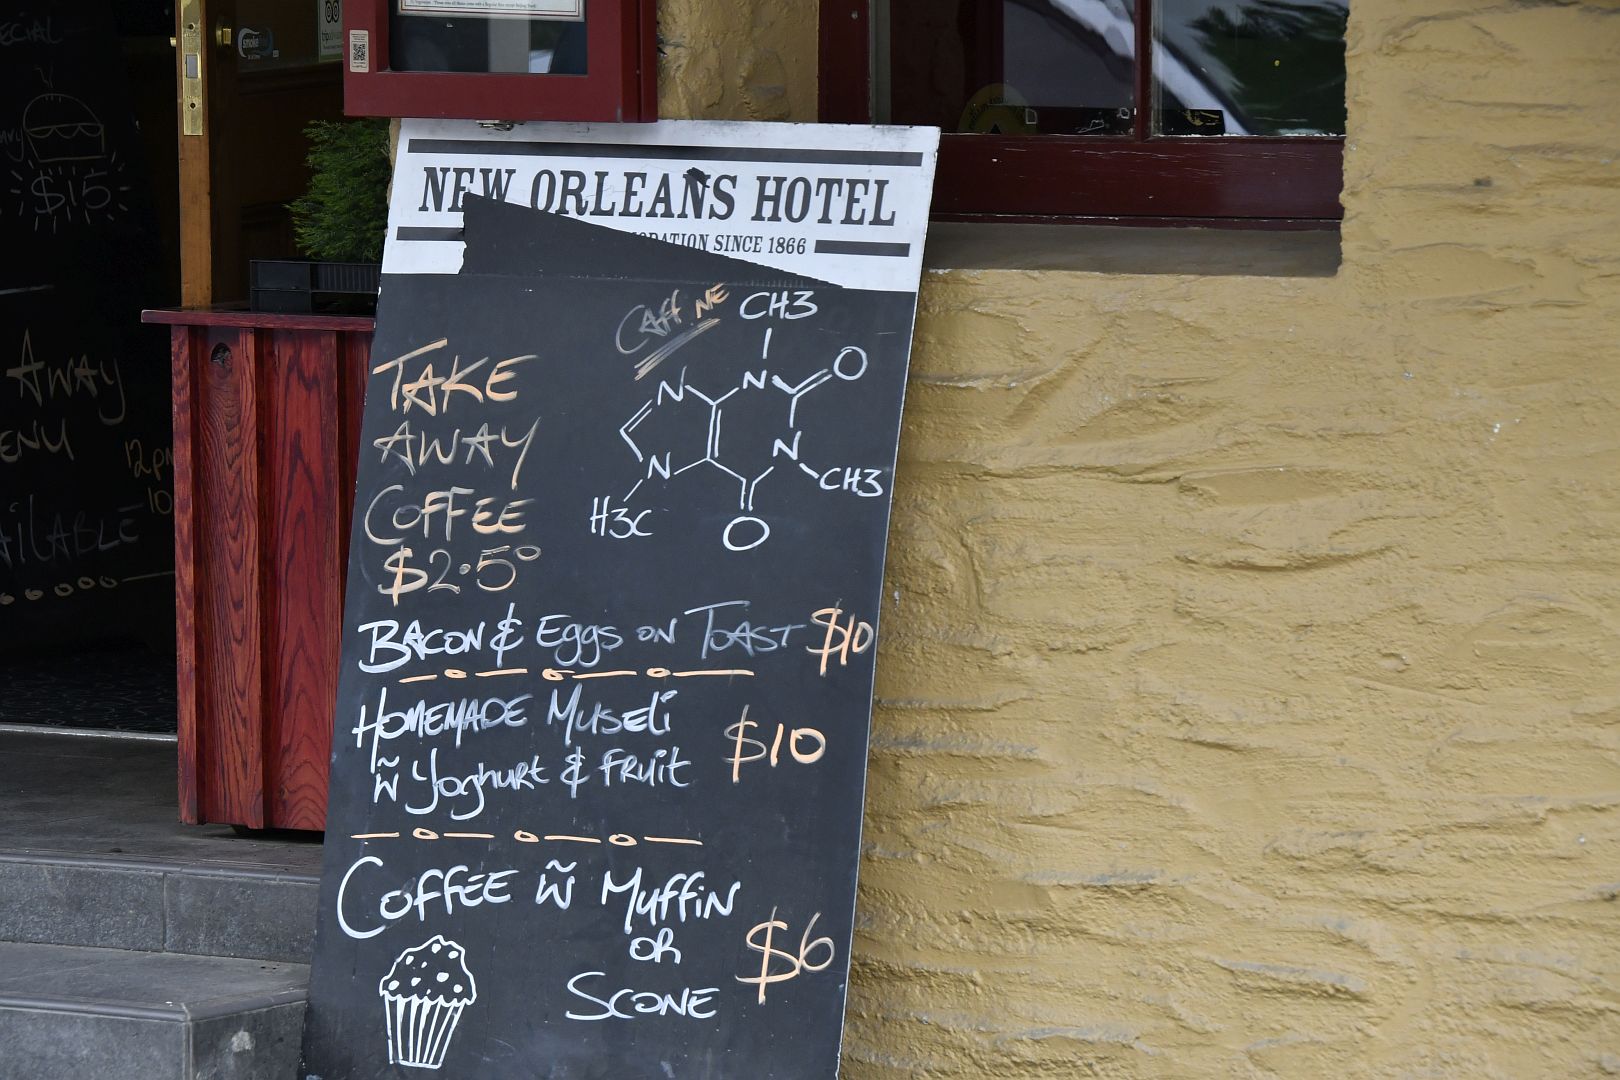 ECIAL
$15
AWAY
ENU
12pm
10
AILABLE
smoke
NEW ORLEANS HOTEL
SINCE 1866
CAFFINE
CH3
N
N
O
N
N
CH3
H3C
O
TAKE
AWAY
COFFEE
$2.50
BACON & Eggs ON TOAST $10
HOMEMADE MUSELi
W̃ Yoghurt & FRUIT $10
COFFEE W̃ MUFFiN
OR
SCONE $6